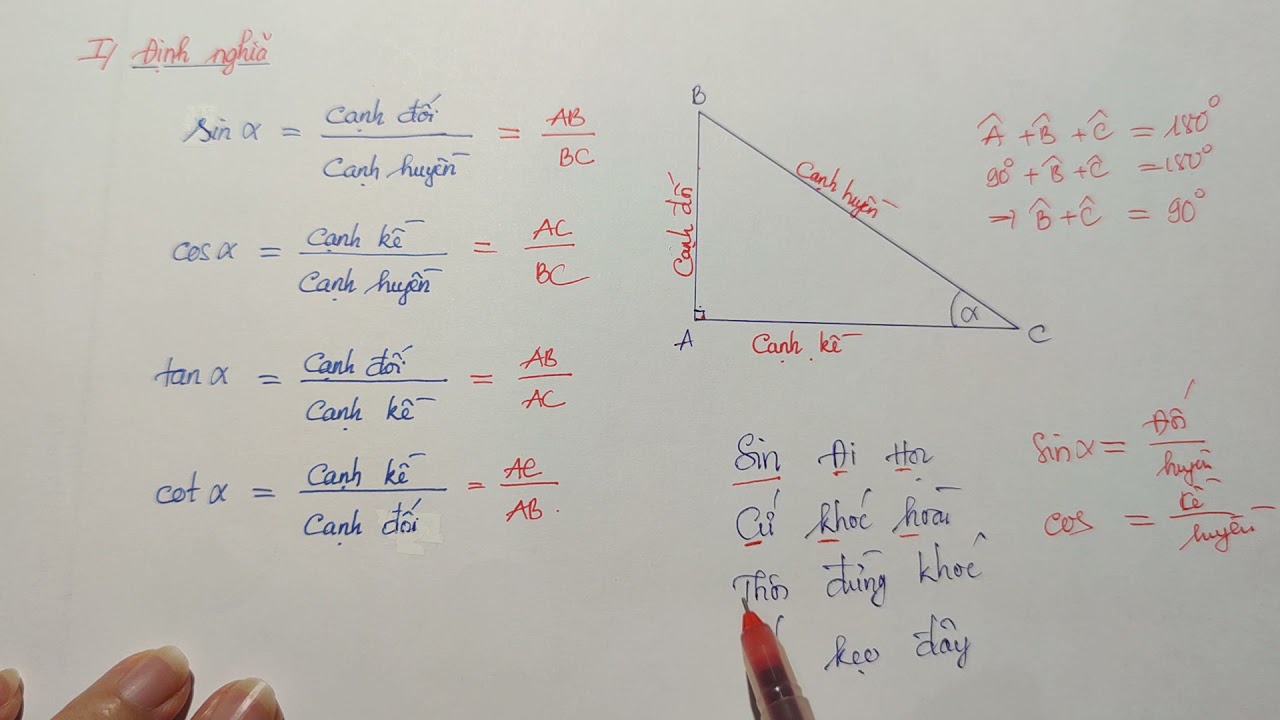 I/ Định nghĩa
sin α = Cạnh đối / Cạnh huyền = AB / BC
cos α = Cạnh kề / Cạnh huyền = AC / BC
tan α = Cạnh đối / Cạnh kề = AB / AC
cot α = Cạnh kề / Cạnh đối = AC / AB.
B
Cạnh đối
Cạnh huyền
A
α
C
Cạnh kề
Â + B̂ + Ĉ = 180°
90° + B̂ + Ĉ = 180°
⇒ B̂ + Ĉ = 90°
Sin Đi Học
Cứ khóc hoài
Thôi đừng khóc
kẹo đây
Sin α = Đối / huyền
cos = kề / huyền